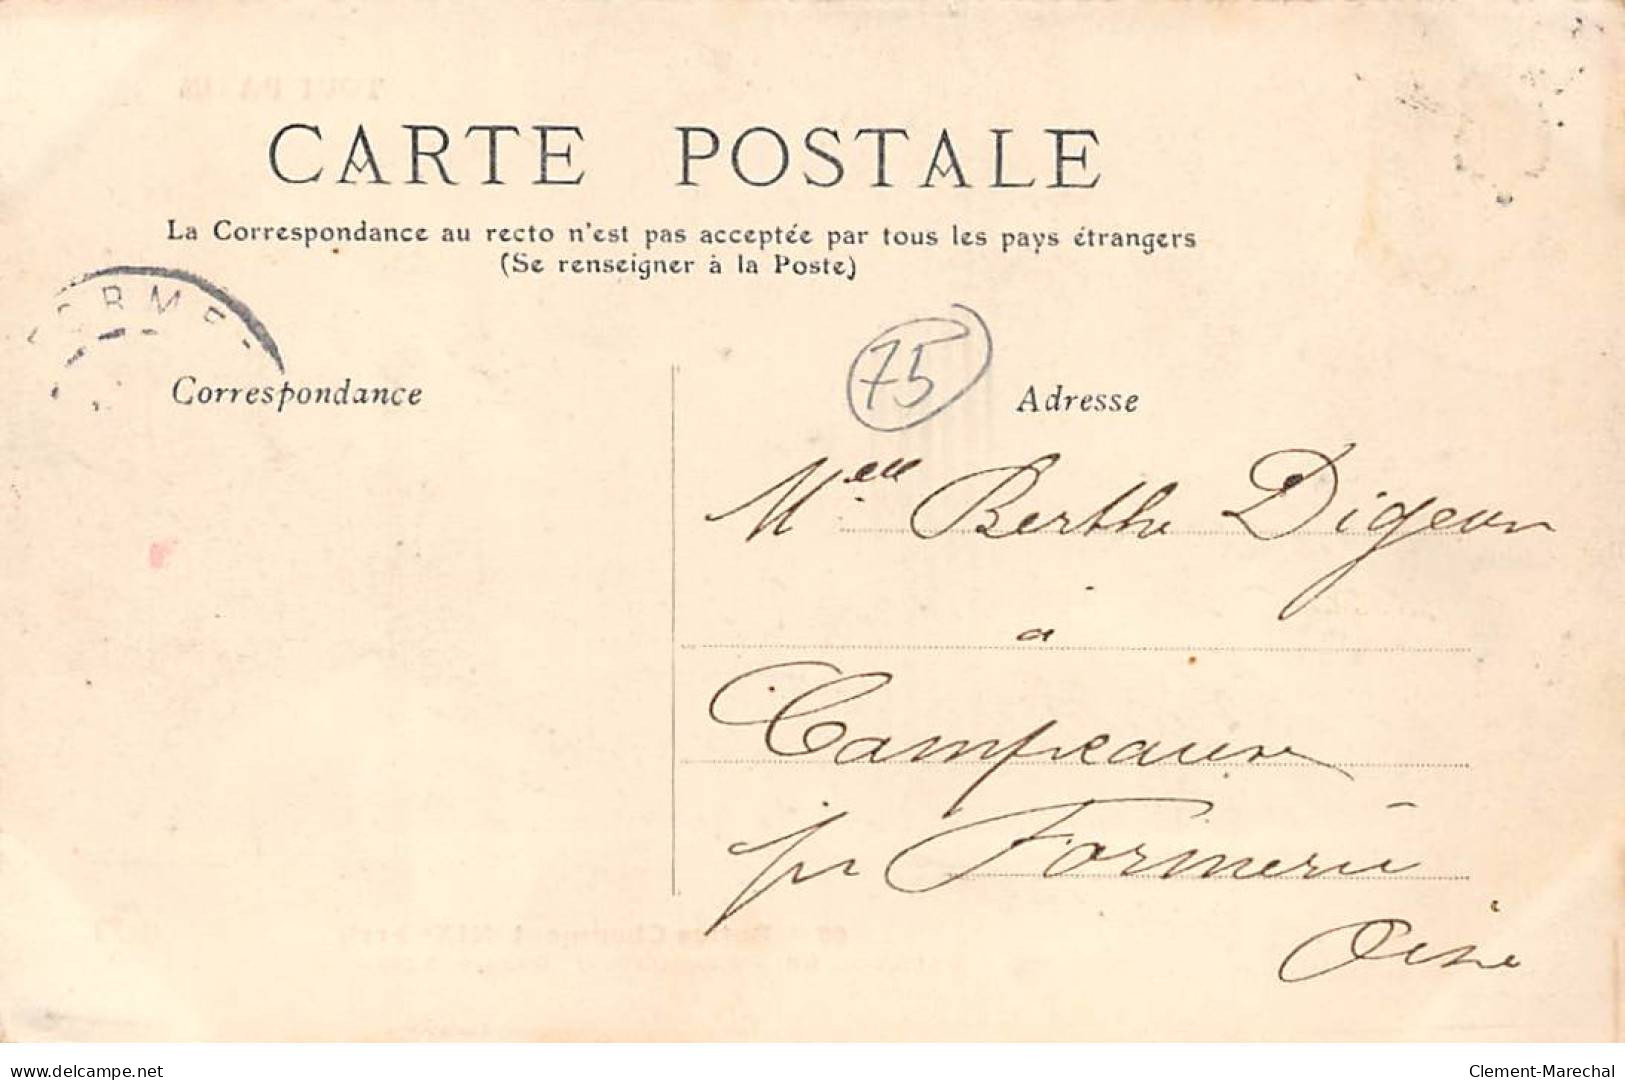 CARTE POSTALE
La Correspondance au recto n'est pas acceptée par tous les pays étrangers
(Se renseigner à la Poste)
75
Correspondance
Adresse
Melle Berthe Digeon
a
Campeaux
pr Formerie
Oise
www.delcampe.net
Clement-Marechal